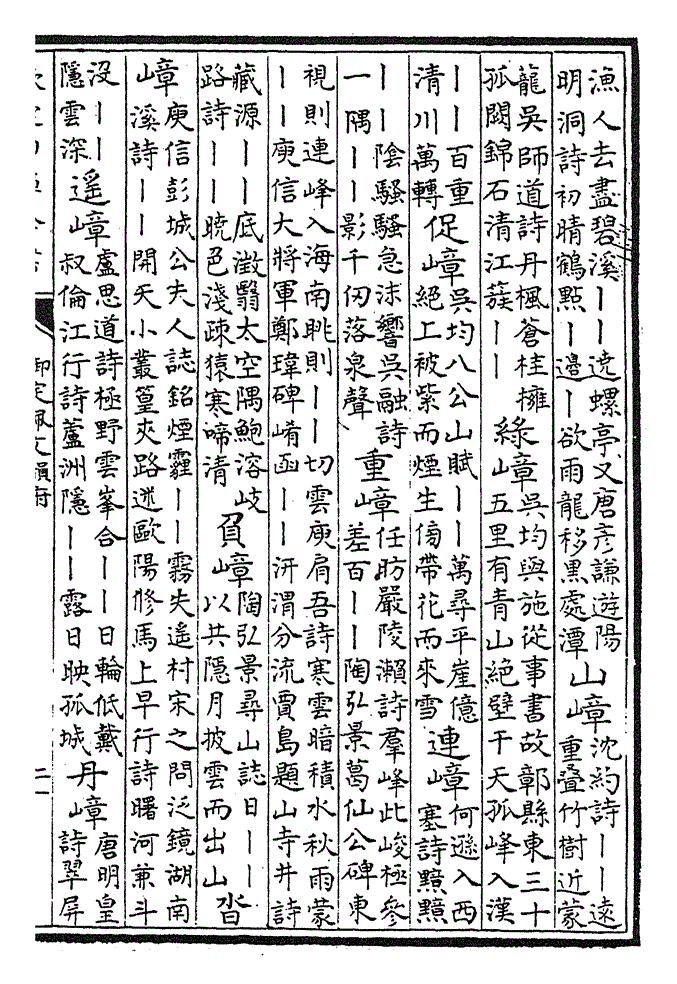 漁人去盡碧溪丨丨遶螺亭又唐彦謙遊陽
明洞詩初晴鶴㸃丨邊丨欲雨龍移黒處潭
山嶂
沈約詩丨丨逺
重疊竹樹近蒙
龍吳師道詩丹楓蒼桂擁
孤闕錦石清江蔟丨丨
緑嶂
吳均與施從事書故鄣縣東三十
五里有青山絶壁干天孤峰入漢
丨丨百重
清川萬轉
促嶂
吳均八公山賦丨丨萬尋平崖億
絶上被紫而煙生傍帶花而來雪
連嶂
何遜入西
塞詩黯黯
丨丨陰騷騷急沫響吳融詩
一隅丨丨影千仭落泉聲
重嶂
任昉嚴陵瀬詩羣峰此峻極參
差百丨丨陶弘景葛仙公碑東
視則連峰入海南眺則丨丨切雲庾肩吾詩寒雲暗積水秋雨蒙
丨丨庾信大將軍鄭瑋碑崤函丨丨汧渭分流賈島題山寺井詩
藏源丨丨底澂翳太空隅鮑溶岐
路詩丨丨曉色淺疎猿寒啼清
負嶂
陶弘景尋山誌日丨丨
以共隱月披雲而出山
沓
嶂
庾信彭城公夫人誌銘煙霾丨丨霧失遥村宋之問泛鏡湖南
溪詩丨丨開天小叢篁夾路迷歐陽修馬上早行詩曙河兼斗
没丨丨
隱雲深
遥嶂
盧思道詩極野雲峯合丨丨日輪低戴
叔倫江行詩蘆洲隱丨丨露日映孤城
丹嶂
唐明皇
詩翠屏
御定佩文韻府